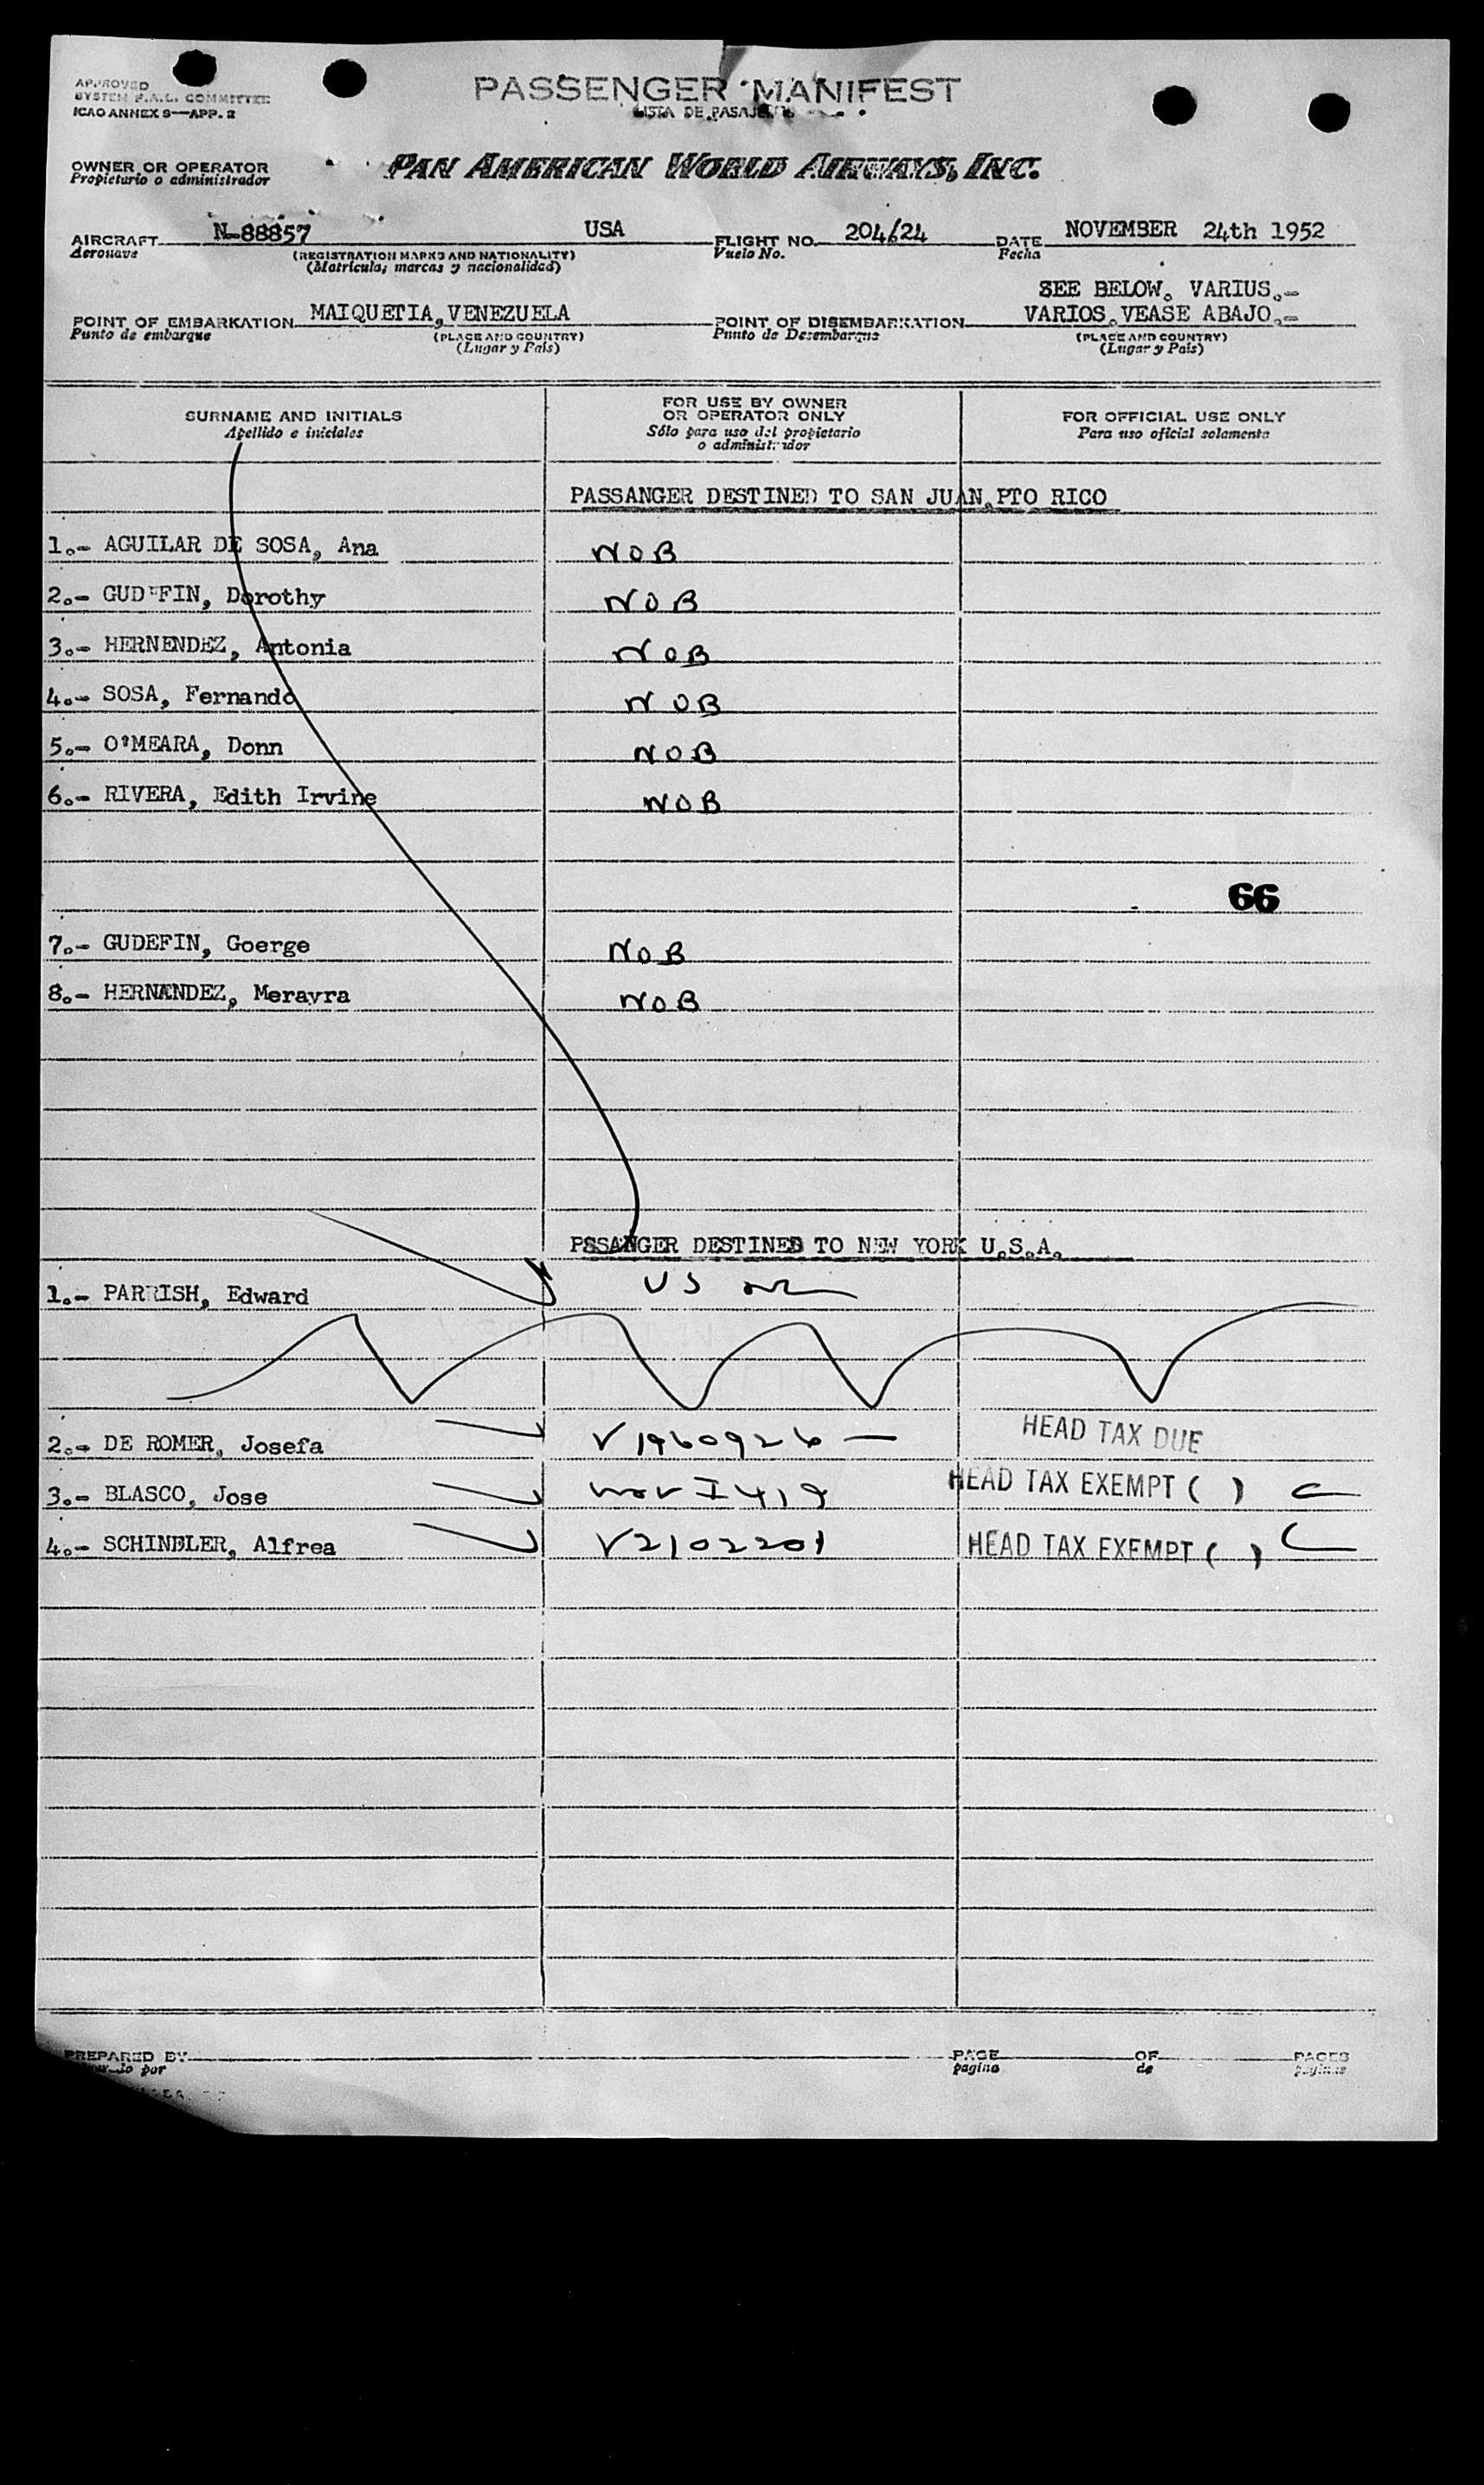 APPROVED
SYSTEM F.A.L. COMMITTEE
ICAO ANNEX 9—APP. 2
PASSENGER MANIFEST
LISTA DE PASAJEROS
OWNER OR OPERATOR
Propietario o administrador
PAN AMERICAN WORLD AIRWAYS, INC.
AIRCRAFT N-88857 USA FLIGHT NO. 204/24 DATE NOVEMBER 24th 1952
Aeronave (REGISTRATION MARKS AND NATIONALITY) Vuelo No. Fecha
(Matricula; marcas y nacionalidad)
SEE BELOW. VARIUS.-
POINT OF EMBARKATION MAIQUETIA, VENEZUELA POINT OF DISEMBARKATION VARIOS.VEASE ABAJO.-
Punto de embarque (PLACE AND COUNTRY) Punto de Desembarque (PLACE AND COUNTRY)
(Lugar y País) (Lugar y País)
SURNAME AND INITIALS
Apellido e iniciales
FOR USE BY OWNER
OR OPERATOR ONLY
Sólo para uso del propietario
o administrador
FOR OFFICIAL USE ONLY
Para uso oficial solamente
PASSANGER DESTINED TO SAN JUAN,PTO RICO
1.- AGUILAR DE SOSA, Ana NOB
2.- GUDEFIN, Dorothy NOB
3.- HERNENDEZ, Antonia NOB
4.- SOSA, Fernando NOB
5.- O'MEARA, Donn NOB
6.- RIVERA, Edith Irvine NOB
66
7.- GUDEFIN, Goerge NOB
8.- HERNANDEZ, Merayra NOB
PSSANGER DESTINED TO NEW YORK U.S.A.
1.- PARRISH, Edward US
2.- DE ROMER, Josefa V1960926 — HEAD TAX DUE
3.- BLASCO, Jose I419 HEAD TAX EXEMPT ( )
4.- SCHINDLER, Alfrea V2102201 HEAD TAX EXEMPT ( )
PREPARED BY PAGE OF PAGES
por pagina de páginas